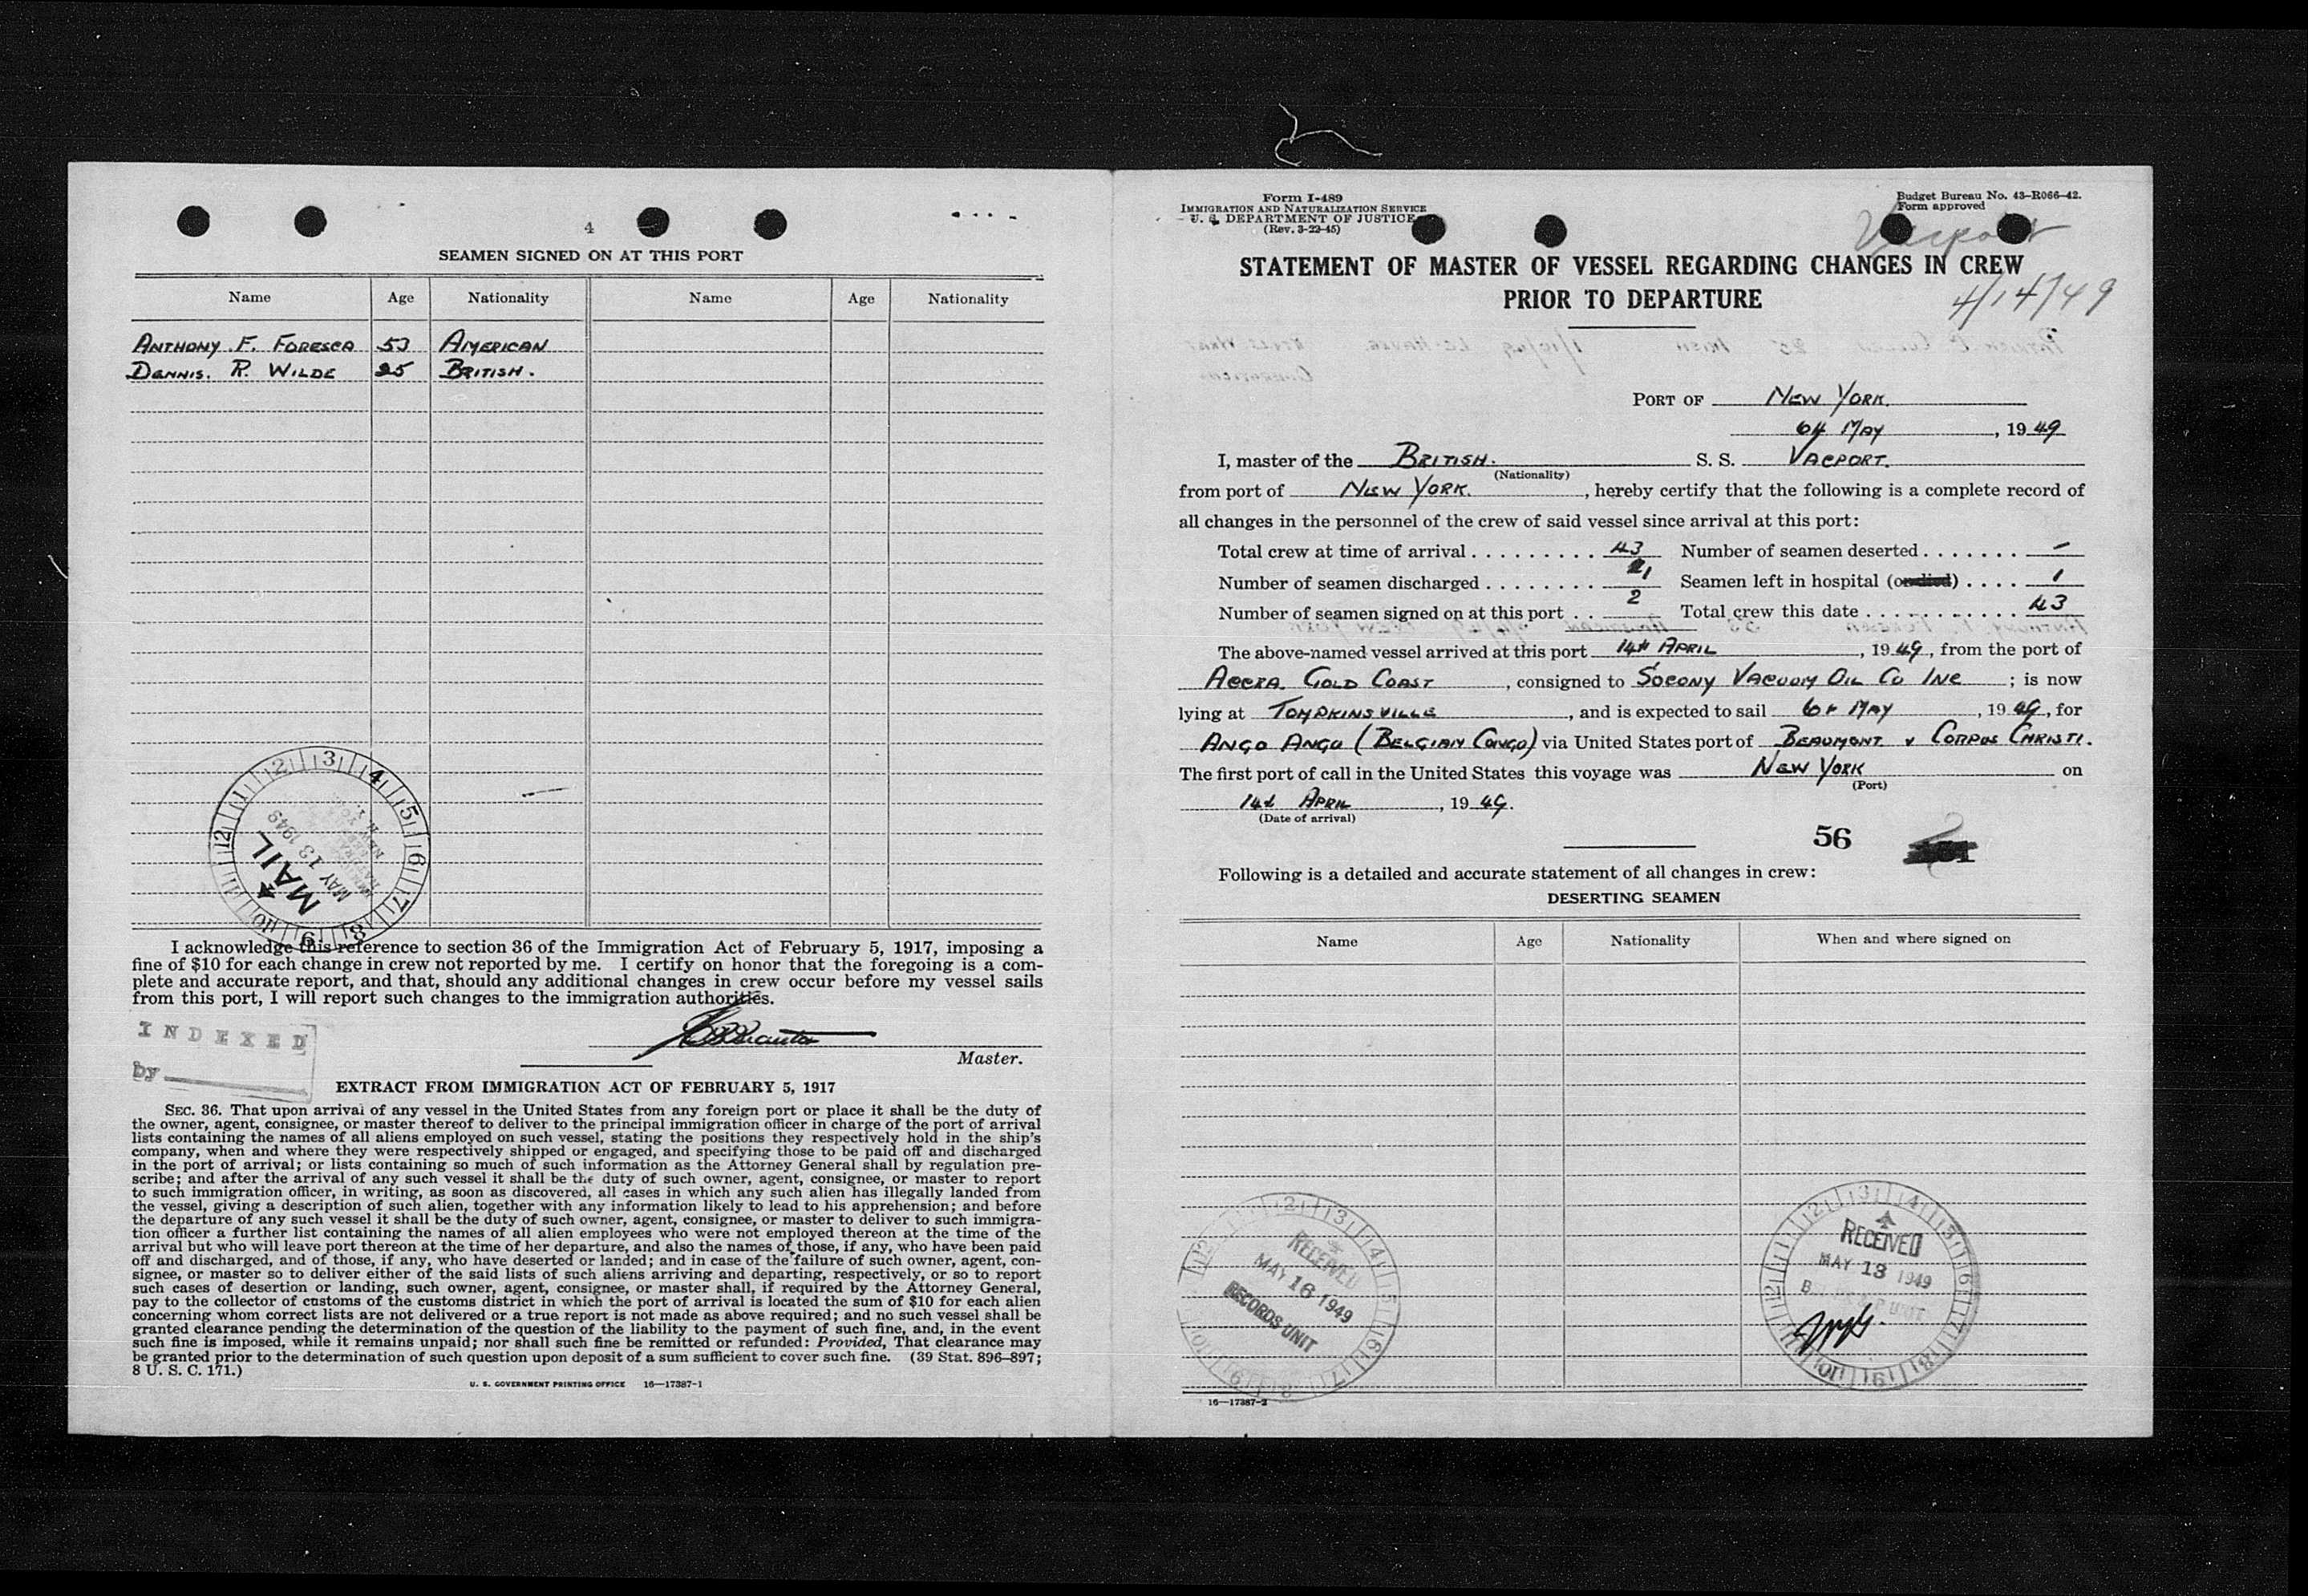 4
SEAMEN SIGNED ON AT THIS PORT
Name Age Nationality Name Age Nationality
ANTHONY F. FORESCA 53 AMERICAN
DENNIS. R. WILDE 25 BRITISH.
MAIL
MAY 13 1949
I acknowledge this reference to section 36 of the Immigration Act of February 5, 1917, imposing a
fine of $10 for each change in crew not reported by me. I certify on honor that the foregoing is a com-
plete and accurate report, and that, should any additional changes in crew occur before my vessel sails
from this port, I will report such changes to the immigration authorities.
INDEXED
by
Master.
EXTRACT FROM IMMIGRATION ACT OF FEBRUARY 5, 1917
SEC. 36. That upon arrival of any vessel in the United States from any foreign port or place it shall be the duty of
the owner, agent, consignee, or master thereof to deliver to the principal immigration officer in charge of the port of arrival
lists containing the names of all aliens employed on such vessel, stating the positions they respectively hold in the ship's
company, when and where they were respectively shipped or engaged, and specifying those to be paid off and discharged
in the port of arrival; or lists containing so much of such information as the Attorney General shall by regulation pre-
scribe; and after the arrival of any such vessel it shall be the duty of such owner, agent, consignee, or master to report
to such immigration officer, in writing, as soon as discovered, all cases in which any such alien has illegally landed from
the vessel, giving a description of such alien, together with any information likely to lead to his apprehension; and before
the departure of any such vessel it shall be the duty of such owner, agent, consignee, or master to deliver to such immigra-
tion officer a further list containing the names of all alien employees who were not employed thereon at the time of the
arrival but who will leave port thereon at the time of her departure, and also the names of those, if any, who have been paid
off and discharged, and of those, if any, who have deserted or landed; and in case of the failure of such owner, agent, con-
signee, or master so to deliver either of the said lists of such aliens arriving and departing, respectively, or so to report
such cases of desertion or landing, such owner, agent, consignee, or master shall, if required by the Attorney General,
pay to the collector of customs of the customs district in which the port of arrival is located the sum of $10 for each alien
concerning whom correct lists are not delivered or a true report is not made as above required; and no such vessel shall be
granted clearance pending the determination of the question of the liability to the payment of such fine, and, in the event
such fine is imposed, while it remains unpaid; nor shall such fine be remitted or refunded: Provided, That clearance may
be granted prior to the determination of such question upon deposit of a sum sufficient to cover such fine. (39 Stat. 896–897;
8 U. S. C. 171.)
U. S. GOVERNMENT PRINTING OFFICE 16—17387-1
Form I-489
IMMIGRATION AND NATURALIZATION SERVICE
U. S. DEPARTMENT OF JUSTICE
(Rev. 3-22-45)
Budget Bureau No. 43-R066-42.
Form approved
Vacport
4/14/49
STATEMENT OF MASTER OF VESSEL REGARDING CHANGES IN CREW
PRIOR TO DEPARTURE
PORT OF NEW YORK.
6th MAY, 1949
I, master of the BRITISH. S. S. VACPORT.
(Nationality)
from port of NEW YORK., hereby certify that the following is a complete record of
all changes in the personnel of the crew of said vessel since arrival at this port:
Total crew at time of arrival . . . . . . . . . 43 Number of seamen deserted . . . . . . . –
Number of seamen discharged . . . . . . . . 1 Seamen left in hospital (or died) . . . . 1
Number of seamen signed on at this port . . 2 Total crew this date . . . . . . . . . . . . 43
The above-named vessel arrived at this port 14th APRIL, 1949, from the port of
ACCRA. GOLD COAST, consigned to SOCONY VACUUM OIL CO INC; is now
lying at TOMPKINSVILLE, and is expected to sail 6th MAY, 1949, for
ANGO ANGO (BELGIAN CONGO) via United States port of BEAUMONT & CORPUS CHRISTI.
The first port of call in the United States this voyage was NEW YORK on
(Port)
14th APRIL, 1949.
(Date of arrival)
56
Following is a detailed and accurate statement of all changes in crew:
DESERTING SEAMEN
Name Age Nationality When and where signed on
RECEIVED
MAY 16 1949
RECORDS UNIT
RECEIVED
MAY 13 1949
16—17387-2